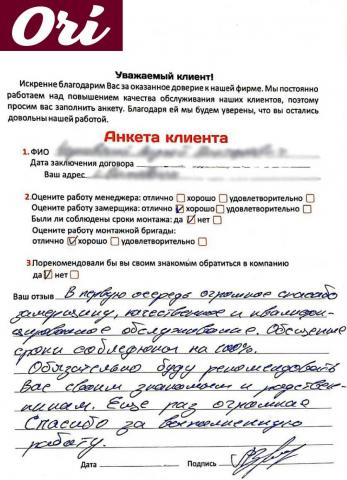 Ori
Уважаемый клиент!
Искренне благодарим Вас за оказанное доверие к нашей фирме. Мы постоянно
работаем над повышением качества обслуживания наших клиентов, поэтому
просим вас заполнить анкету. Благодаря ей мы будем уверены, что вы остались
довольны нашей работой.
Анкета клиента
1. ФИО
Дата заключения договора
Ваш адрес
2.Оцените работу менеджера: отлично хорошо удовлетворительно
Оцените работу замерщика: отлично хорошо удовлетворительно
Были ли соблюдены сроки монтажа: да нет
Оцените работу монтажной бригады:
отлично хорошо удовлетворительно
3.Порекомендовали бы вы своим знакомым обратиться в компанию
да нет
Ваш отзыв В первую очередь огромное спасибо
замерщику, качественное и квалифи-
цированное обслуживание. Обещание
сроки соблюдены на 100%.
Обязательно буду рекомендовать
Вас своим знакомым и родствен-
никам. Еще раз огромное
Спасибо за выполненную
работу.
Дата Подпись